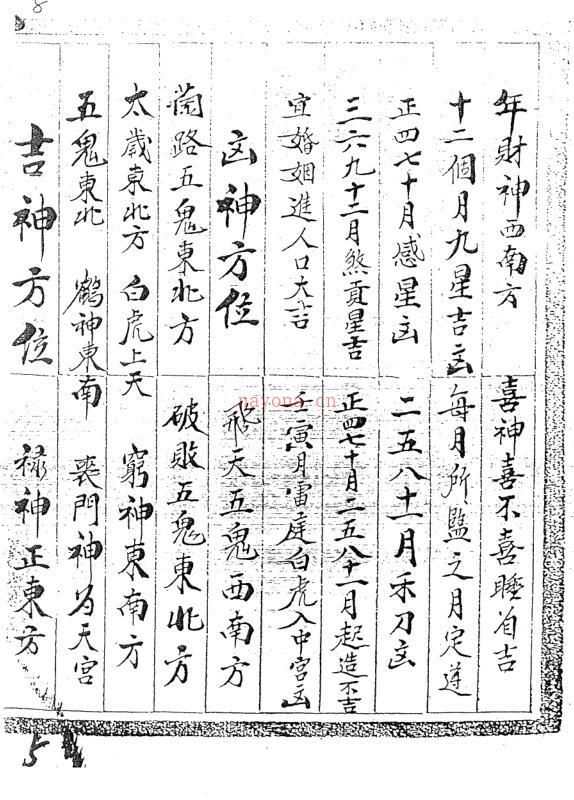 8
年財神西南方 喜神喜不喜睡自吉
十二個月九星吉凶 每月所監之月定遵
正四七十月惑星凶 二五八十一月禾刀凶
三六九十二月煞貢星吉 正四七十月二五八十一月起造不吉
宜婚姻進人口大吉 壬寅月雷庭白虎入中宮凶
凶神方位 飛天五鬼西南方
五鬼東北方 破敗五鬼東北方
太歲東北方 白虎上天 窮神東南方
五鬼東北 鶴神東南 喪門神為天宮
吉神方位 祿神正東方
nayona.cn
5